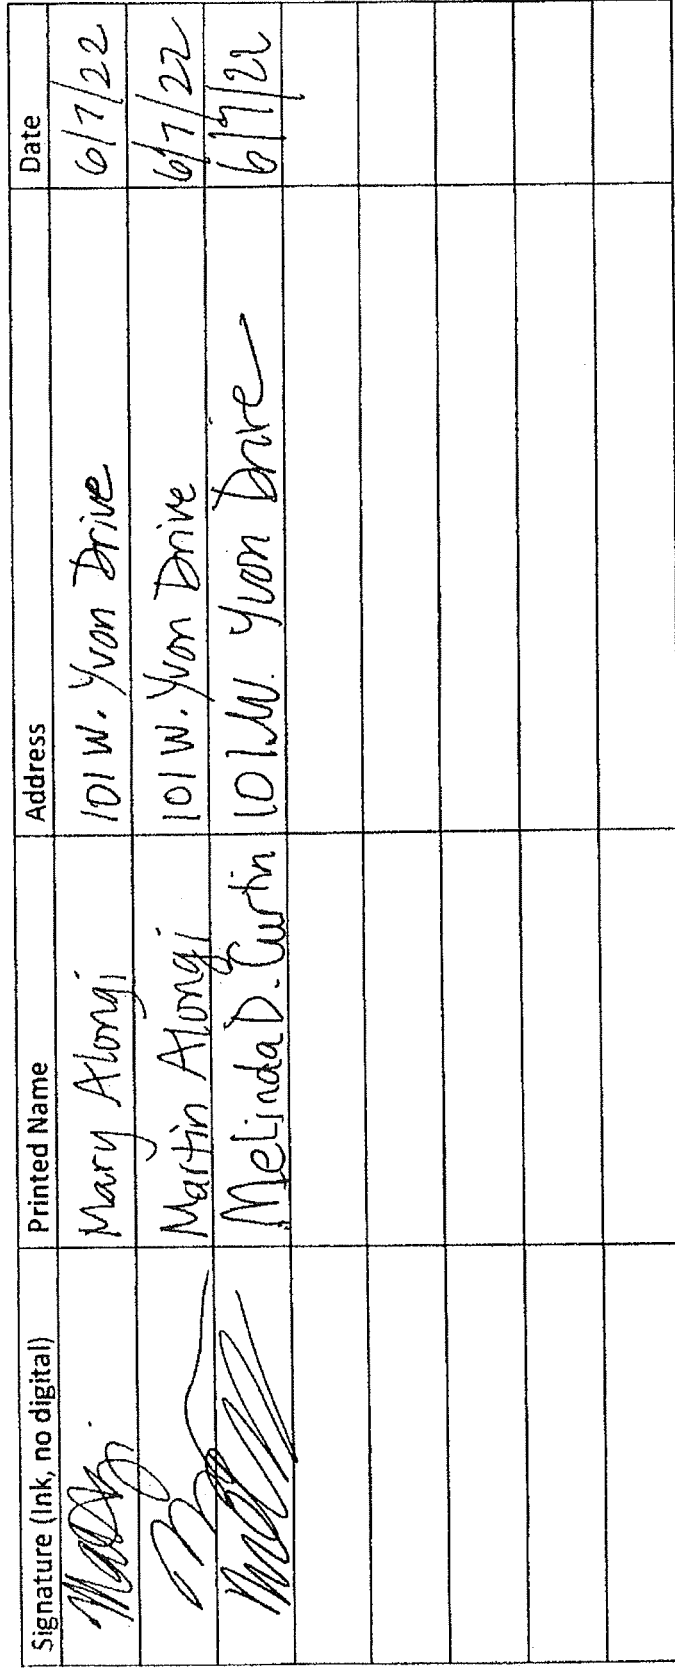 Signature (Ink, no digital) Printed Name Address Date
Mary Alongi 101 W. Yvon Drive 6/7/22
Martin Alongi 101 W. Yvon Drive 6/7/22
Melinda D. Curtin 101 W. Yvon Drive 6/7/22